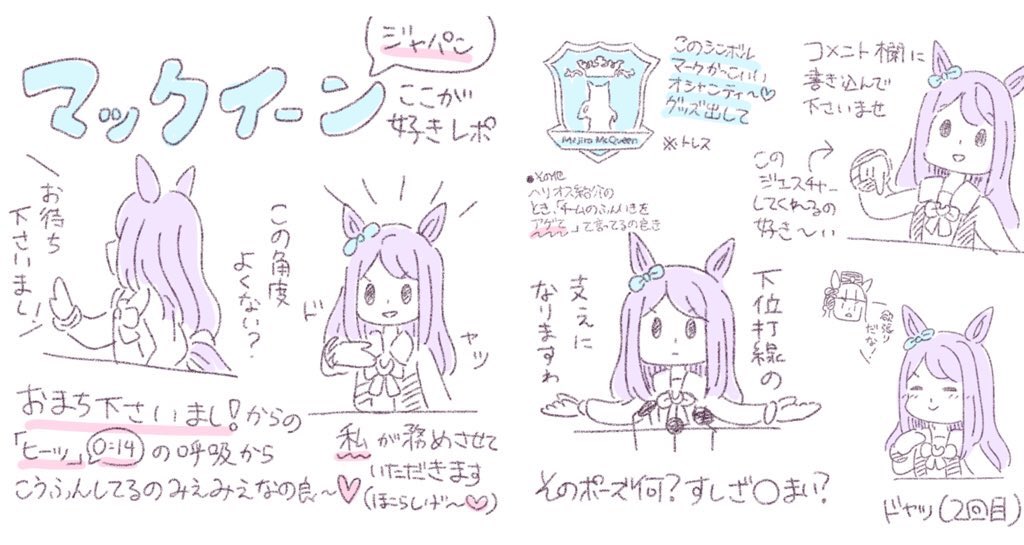 ジャパン
マックイーン
ここが
好きレポ
お待ち
下さいまし!
この角度
よくない?
ド
ヤッ
おまち下さいまし!からの
「ヒーッ」0:14の呼吸から
こうふんしてるのみえみえなの良〜
私が務めさせて
いただきます
(ほこらしげ〜)
このシンボル
マークかっこいい
オシャンティ〜
グッズ出して
Mejiro McQueen
※トレス
コメント欄に
書き込んで
下さいませ
この
ジェスチャー
してくれてるの
好き〜い
●その他
ヘリオス紹介の
とき、「チームのふんいきを
アゲて」って言ってるの良き
下位打線の
支えに
なりますわ
欲張り
だな!
そのポーズ何?すしざ〇まい?
ドヤッ(2回目)